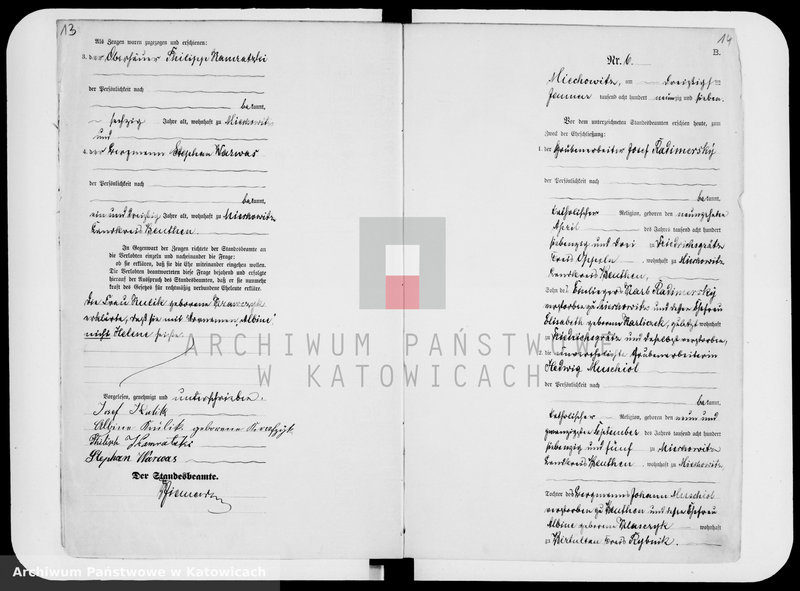 13
Als Zeugen waren zugezogen und erschienen:
3. der Oberhäuer Philipp Namratzki
der Persönlichkeit nach
bekannt,
sechzig Jahre alt, wohnhaft zu Miechowitz
und
4. der Bergmann Stephan Warwas
der Persönlichkeit nach
bekannt,
ein und dreißig Jahre alt, wohnhaft zu Miechowitz
Landkreis Beuthen.
In Gegenwart der Zeugen richtete der Standesbeamte an
die Verlobten einzeln und nacheinander die Frage:
ob sie erklären, daß sie die Ehe miteinander eingehen wollen.
Die Verlobten beantworteten diese Frage bejahend und erfolgte
hierauf der Ausspruch des Standesbeamten, daß er sie nunmehr
kraft des Gesetzes für rechtmäßig verbundene Eheleute erkläre.
Die Frau Kulik geborene
erklärte, daß sie mit Vornamen „Albine"
nicht Helene heiße.
Vorgelesen, genehmigt und unterschrieben.
Josef Kulik
Albine Kulik geborene
Philipp
Stephan Warwas
Der Standesbeamte.
14
B.
Nr. 6.
Miechowitz, am dreißigsten
Januar tausend acht hundert neunzig und sieben.
Vor dem unterzeichneten Standesbeamten erschien heute, zum
Zweck der Eheschließung:
1. der Grubenarbeiter Josef Radimerský
der Persönlichkeit nach
bekannt,
katholischer Religion, geboren den neunzehnten
April des Jahres tausend acht hundert
siebenzig und drei zu Friedrichsgrätz
Kreis Oppeln, wohnhaft zu Miechowitz
Landkreis Beuthen,
Sohn des Einliegers Karl Radimerský
verstorben zu Miechowitz und dessen Ehefrau
Elisabeth geborene zuletzt wohnhaft
zu Friedrichsgrätz und daselbst verstorben,
2. die unverehelichte Grubenarbeiterin
Hedwig Muschiol
der Persönlichkeit nach
bekannt,
katholischer Religion, geboren den neun und
zwanzigsten September des Jahres tausend acht hundert
siebenzig und fünf zu Miechowitz
Landkreis Beuthen, wohnhaft zu Miechowitz
Tochter des Bergmanns Johann Muschiol
verstorben zu Beuthen und dessen Ehefrau
Albine geborene wohnhaft
zu Birtultau Kreis Rybnik.
ARCHIWUM PAŃSTWOWE
W KATOWICACH
Archiwum Państwowe w Katowicach